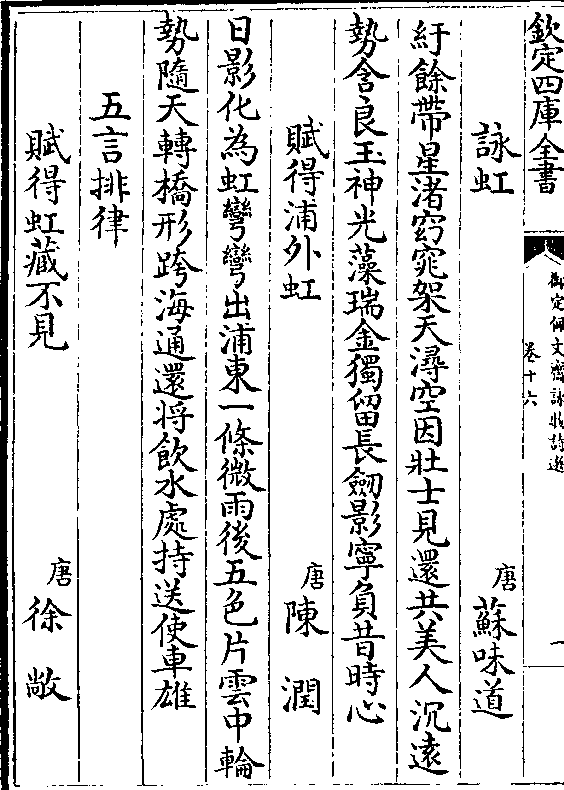 欽定四庫全書
御定佩文齋詠物詩選
卷十六
一
詠虹 唐 蘇味道
紆餘帶星渚窈窕架天潯空因壯士見還共美人沉遠
勢含良玉神光藻瑞金獨留長劒影寧負昔時心
賦得浦外虹 唐 陳潤
日影化為虹彎彎出浦東一條微雨後五色片雲中輪
勢隨天轉橋形跨海通還將飲水處持送使車雄
五言排律
賦得虹藏不見 唐 徐敞